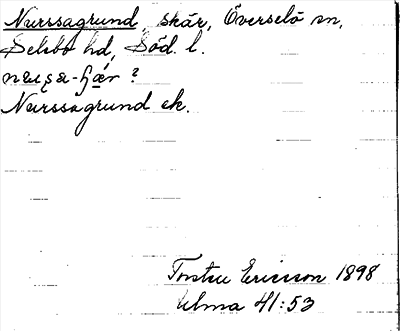 Nurssagrund, skär, Överselö sn,
Selebo hd, Söd. l.
Nurssagrund ek.
Torsten Ericsson 1898
Ulma 41:53